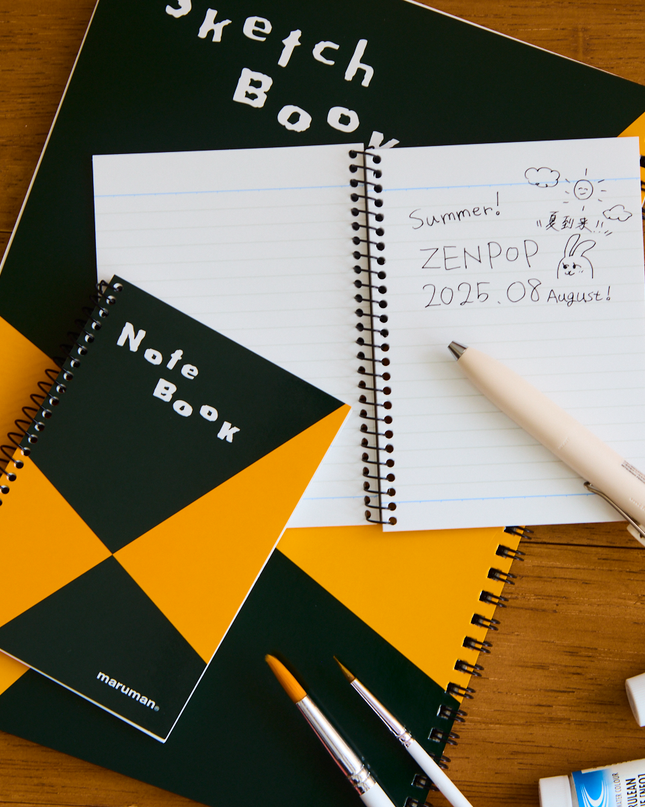 Sketch
Book
Summer!
"夏到来!!"
ZENPOP
2025.08 August!
Note
Book
maruman®